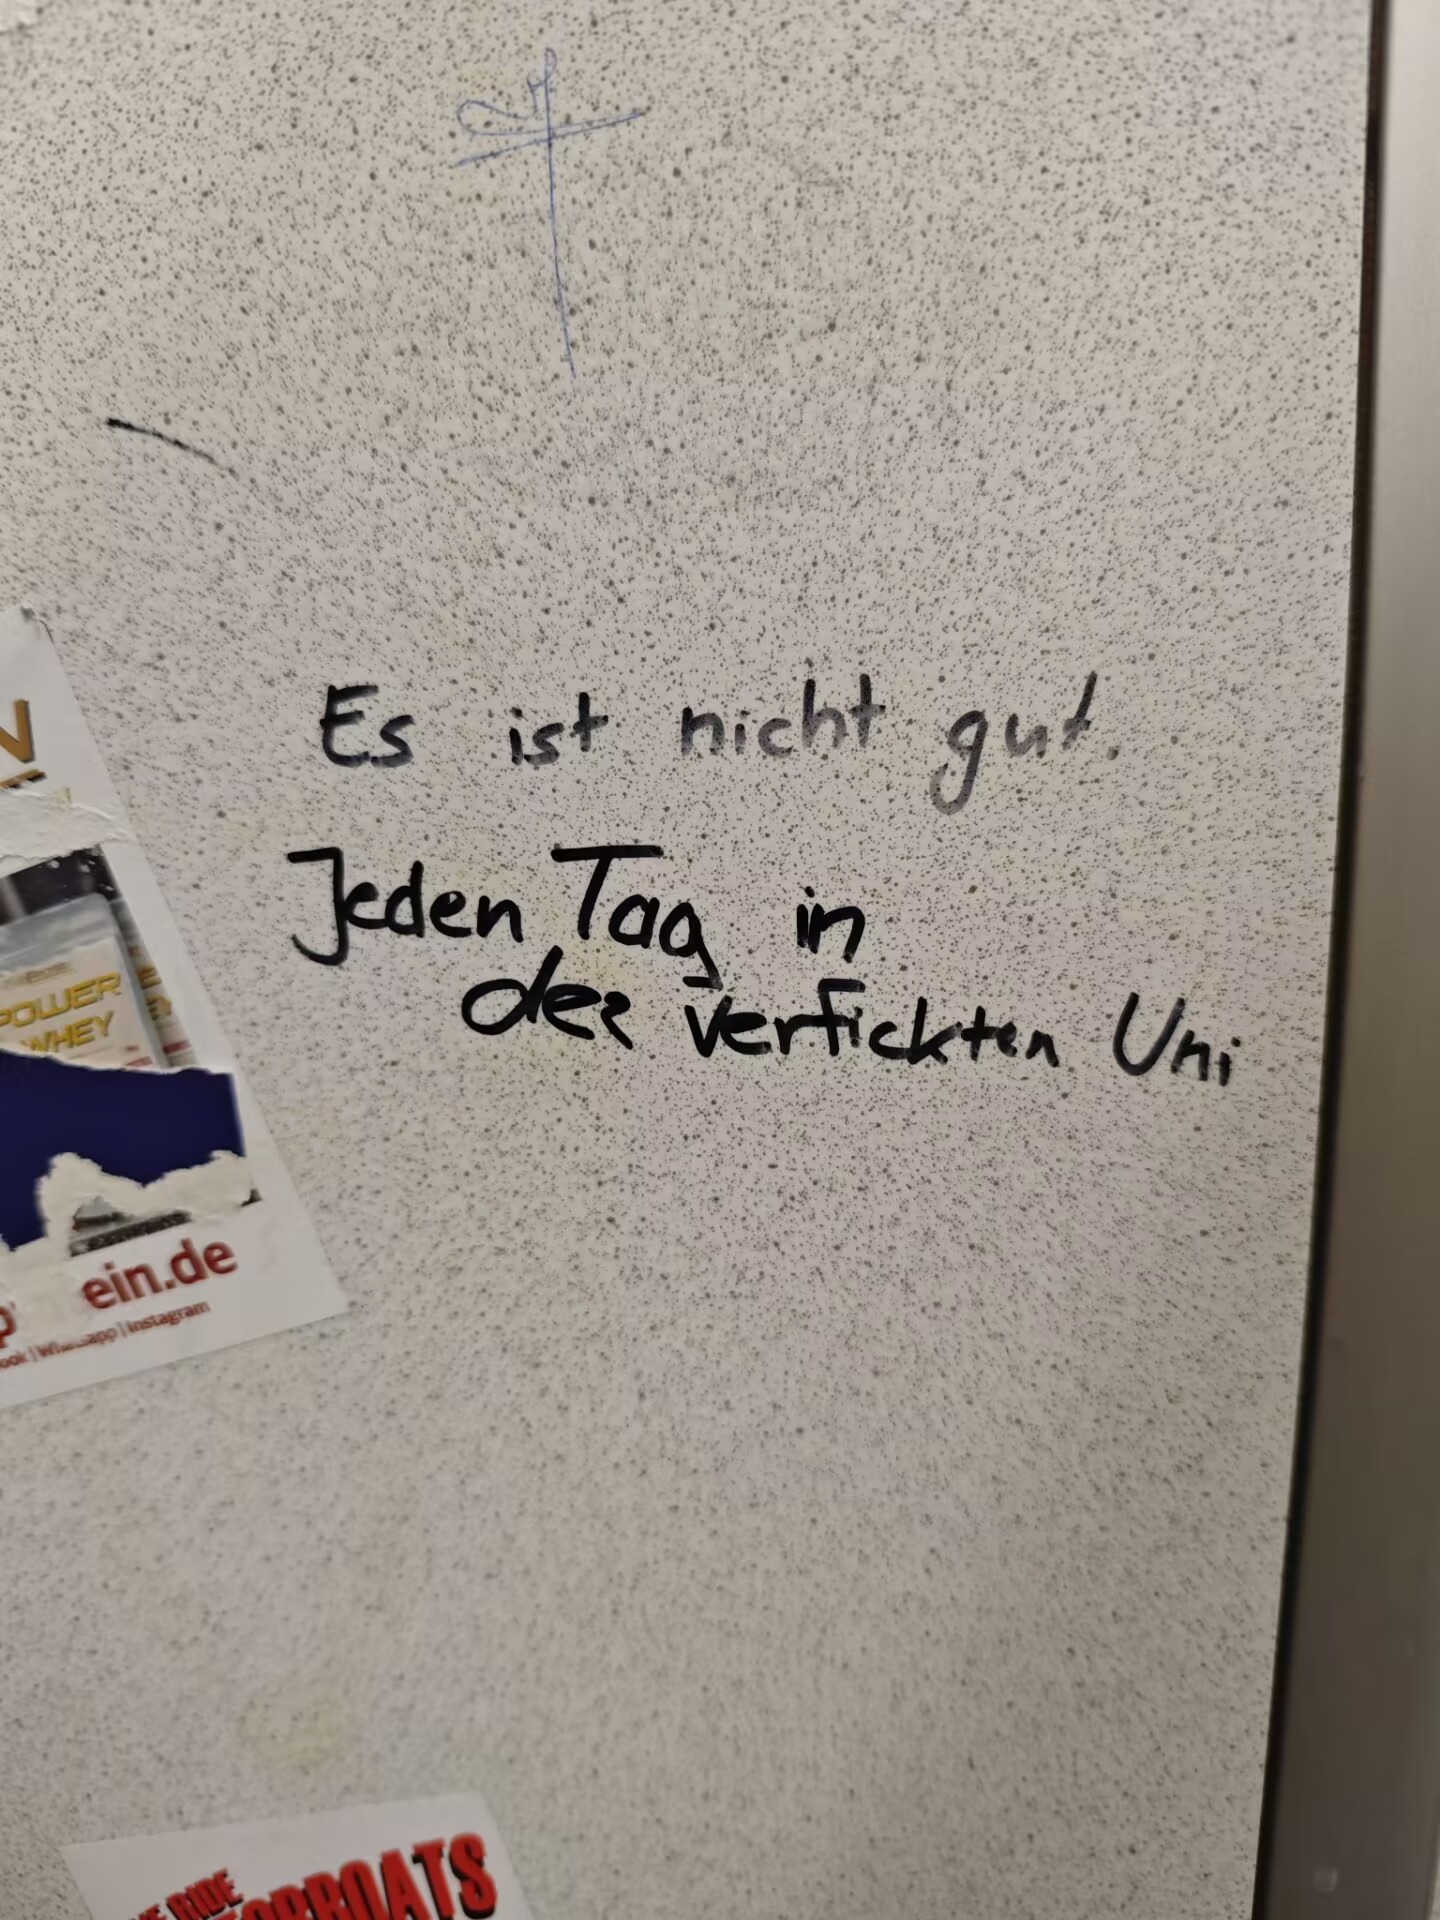 Es ist nicht gut.
Jeden Tag in
der verfickten Uni
N
POWER
WHEY
ein.de
| Whatsapp | Instagram
RIDE